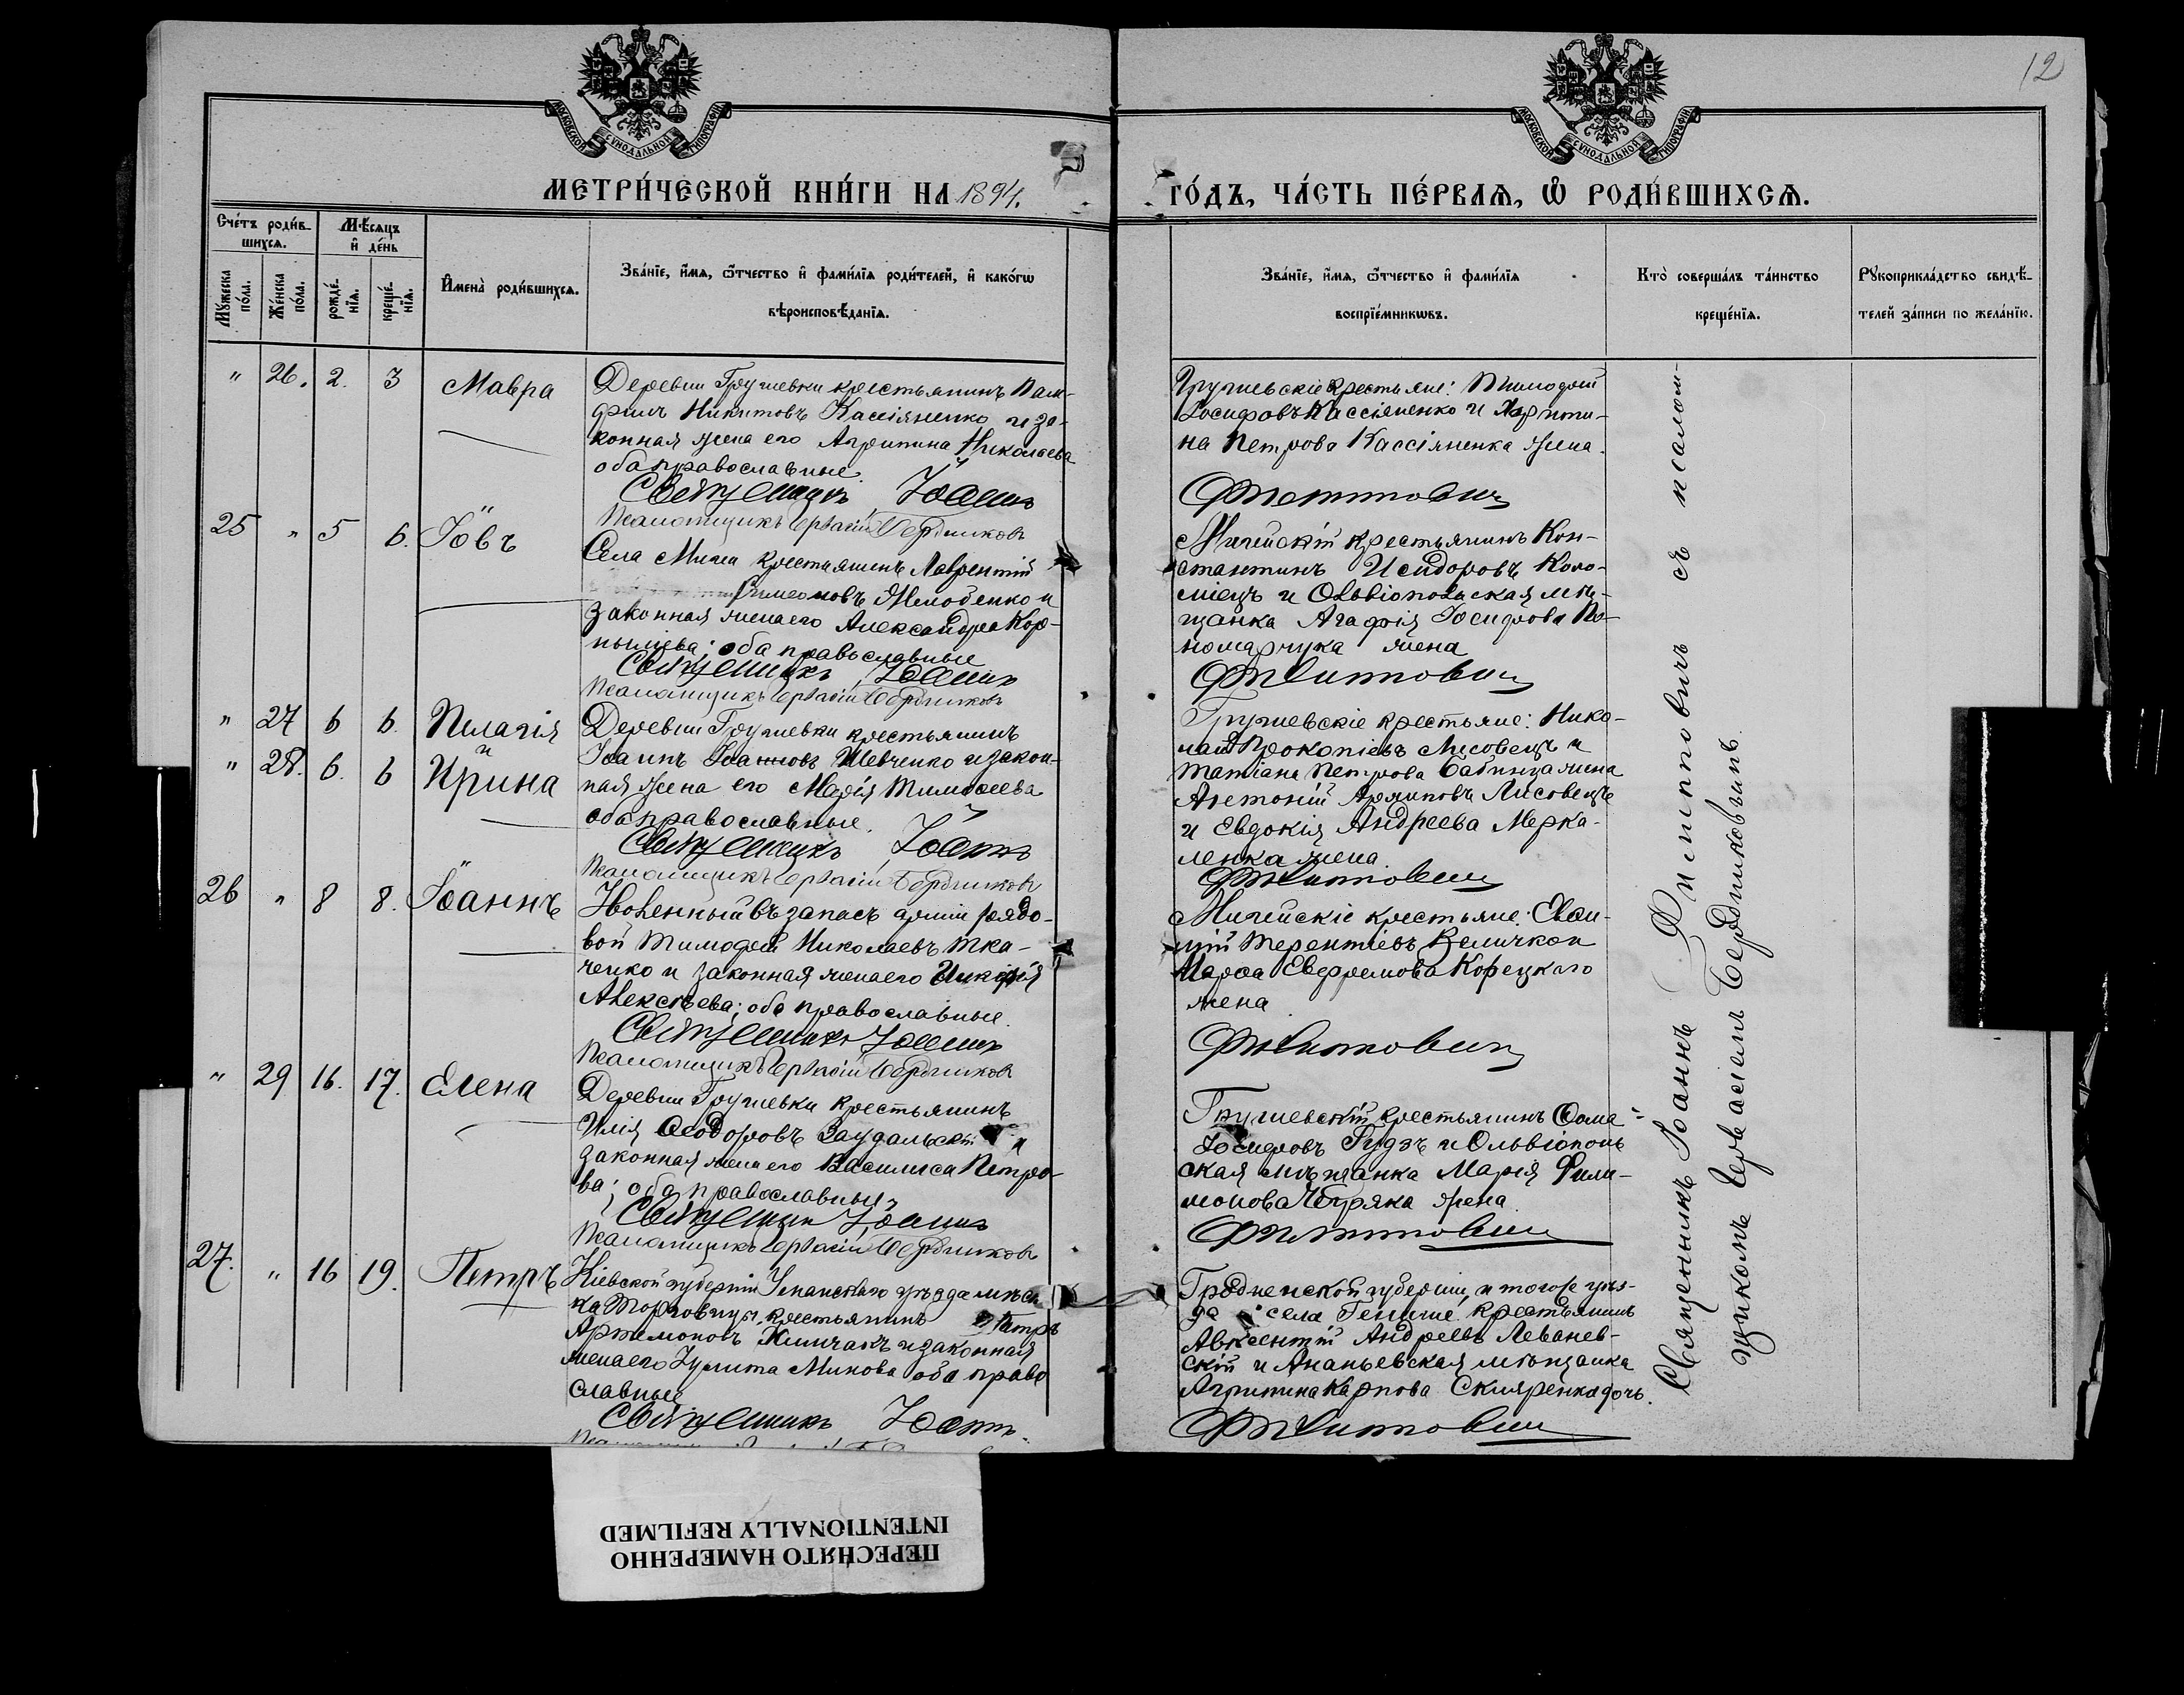 12
МОСКОВСКОЙ СУНОДАЛЬНОЙ ТИПОГРАФІИ
МОСКОВСКОЙ СУНОДАЛЬНОЙ ТИПОГРАФІИ
МЕТРИ́ЧЕСКОЙ КНИ́ГИ НА 1894.
ГО́ДЪ, ЧА́СТЬ ПЕ́РВАѦ, Ѡ҆ РОДИ́ВШИХСѦ.
Сче́тъ роди́в-
шихсѧ.
Мѣ́сѧцъ
и҆ де́нь
Мꙋжеска
по́ла.
Же́нска
по́ла.
рожде́-
нїѧ.
креще́-
нїѧ.
И҆мена̀ роди́вшихсѧ.
Зва́нїе, и҆́мѧ, ѻ҆́тчество и҆ фами́лїѧ роди́телей, и҆ како́гѡ
вѣроисповѣ́данїѧ.
Зва́нїе, и҆́мѧ, ѻ҆́тчество и҆ фами́лїѧ
воспрїе́мникѡвъ.
Кто̀ соверша́лъ та́инство
креще́нїѧ.
Рꙋкоприкла́дство свидѣ́-
телей за́писи по жела́нїю.
" 26. 2. 3 Мавра
Деревни Грушевки крестьянинъ Пам-
филъ Никитовъ Кассіяненко и за-
конная жена его Агрипина Николаева
оба православные.
Священникъ Іоаннъ
Псаломщикъ Гервасій Бердниковъ
Грушевскіе крестьяне: Тимофей
Іосифовъ Кассіяненко и Харити-
на Петрова Кассіяненка жена.
Филипповичъ
25 " 5 6. Іовъ
Села Мигеи крестьянинъ Лаврентій
Симеоновъ и
законная жена его Александра Кор-
ниліева; оба православные
Священникъ Іоаннъ
Псаломщикъ Гервасій Бердниковъ
Мигейскій крестьянинъ Кон-
стантинъ Исидоровъ Коло-
міецъ и Ольвіопольская мѣ-
щанка Агафія Іосифова По-
номарчука жена
Филипповичъ
" 27 6 6. Пелагія
" 28. 6. 6 и Ирина
Деревни Грушевки крестьянинъ
Іоаннъ Іоанновъ Шевченко и закон-
ная жена его Марія Тимофеева
оба православные.
Священникъ Іоаннъ
Псаломщикъ Гервасій Бердниковъ
Грушевскіе крестьяне: Нико-
лай Прокопіевъ Лисовецъ и
Татіана Петрова Бабинца жена
Антоній Лисовецъ
и Евдокія Андреева Мерка-
ленка жена.
Филипповичъ
26 " 8 8. Іоаннъ
Уволенный въ запасъ арміи рядо-
вой Тимофей Николаевъ Тка-
ченко и законная жена его
Алексѣева; оба православные.
Священникъ Іоаннъ
Псаломщикъ Гервасій Бердниковъ
Мигейскіе крестьяне:
Терентіевъ Величко и
Марфа Евфремова Корецкаго
жена
Филипповичъ
" 29 16. 17. Елена
Деревни Грушевки крестьянинъ
Илія Ѳеодоровъ и
законная жена его Василиса Петро-
ва; оба православные
Священникъ Іоаннъ
Псаломщикъ Гервасій Бердниковъ
Грушевскій крестьянинъ Ѳома
Іосифовъ Гудзъ и Ольвіополь-
ская мѣщанка Марія Фили-
монова жена.
Филипповичъ
27. " 16 19. Петръ
Кіевской губерніи Уманскаго уѣзда мѣстеч-
ка Торговицы крестьянинъ Петръ
Артемоновъ и законная
жена его Іулита Минова оба право
славные
Священникъ Іоаннъ
Гродненской губерніи, и того же уѣз-
да села крестьянинъ
Авксентій Андреевъ Леванев-
скій и Ананьевская мѣщанка
Агрипина Карпова Скляренка дочь.
Филипповичъ
Священникъ Іоаннъ Филипповичъ съ псалом-
щикомъ Гервасіемъ Бердниковымъ.
ПЕРЕСНЯТО НАМЕРЕННО
INTENTIONALLY REFILMED